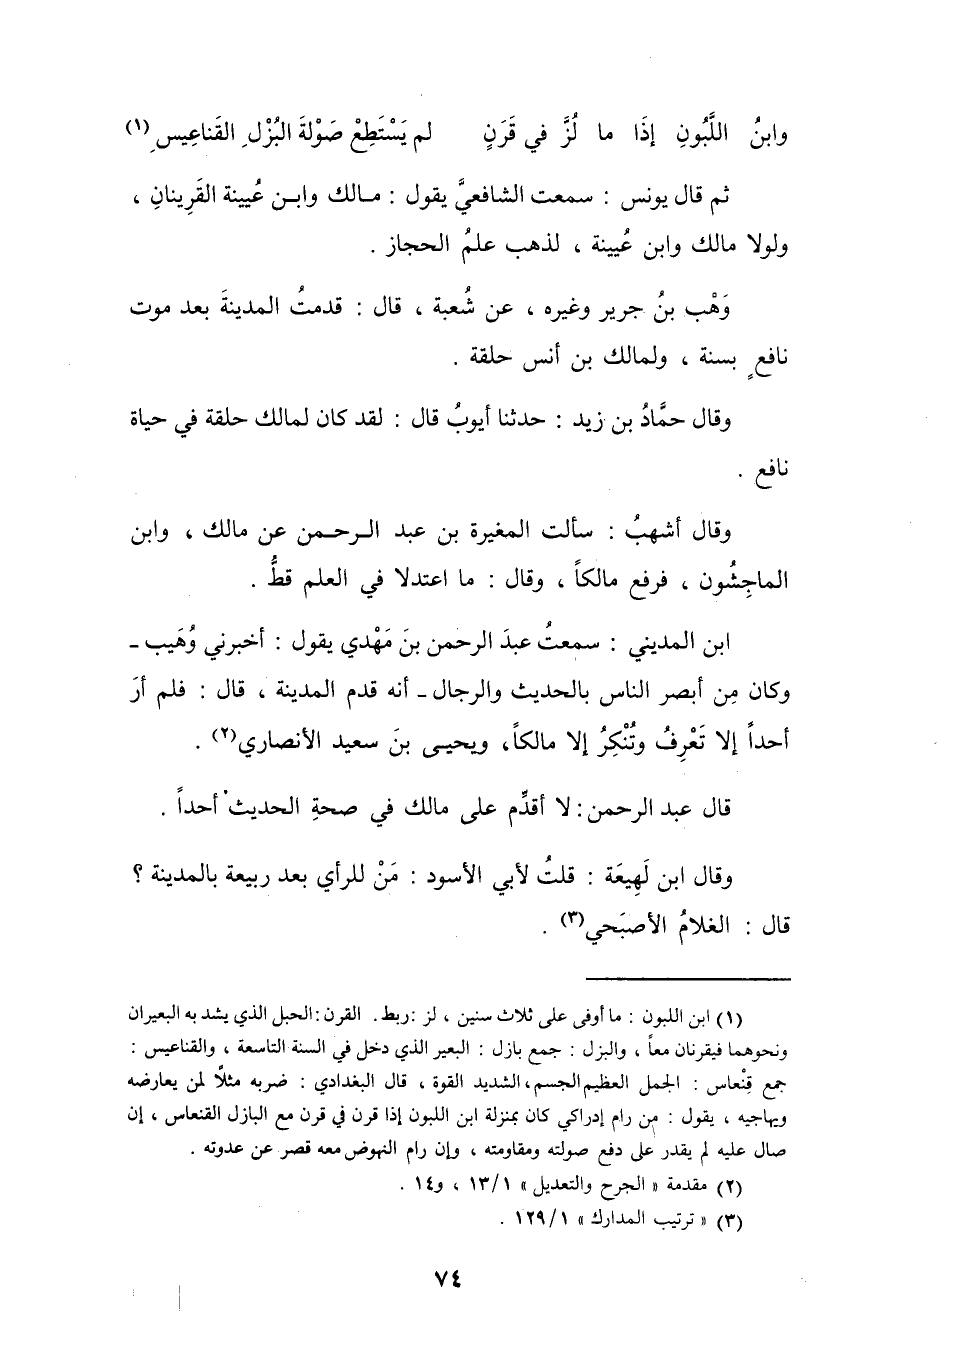 وابنُ اللَّبُونِ إذَا ما لُزَّ في قَرَنٍ لم يَسْتَطِعْ صَوْلةَ البُزْلِ القَناعِيسِ(١)
ثم قال يونس : سمعت الشافعيَّ يقول : مـالك وابـن عُيينة القَرِينانِ ،
ولولا مالك وابن عُيينة ، لذهب علمُ الحجاز .
وَهْب بنُ جرير وغيره ، عن شُعبة ، قال : قدمتُ المدينةَ بعد موت
نافعٍ بسنة ، ولمالك بن أنس حلقة .
وقال حمَّادُ بن زيد : حدثنا أيوبُ قال : لقد كان لمالك حلقة في حياة
نافع .
وقال أشهبُ : سألت المغيرة بن عبد الـرحـمن عن مالك ، وابن
الماجِشُون ، فرفع مالكاً ، وقال : ما اعتدلا في العلم قطُّ .
ابن المديني : سمعتُ عبدَ الرحمن بنَ مَهْدي يقول : أخبرني وُهَيب ـ
وكان مِن أبصر الناس بالحديث والرجال ـ أنه قدم المدينة ، قال : فلم أرَ
أحداً إلا تَعْرِفُ وتُنْكِرُ إلا مالكاً، ويحيى بنَ سعيد الأنصاري(٢) .
قال عبد الرحمن: لا أقدِّم على مالك في صحةِ الحديث أحداً .
وقال ابن لَهِيعَة : قلتُ لأبي الأسود : مَنْ للرأي بعد ربيعة بالمدينة ؟
قال : الغلامُ الأصبَحي(٣) .
(١) ابن اللبون : ما أوفى على ثلاث سنين ، لز :ربط. القرن :الحبل الذي يشد به البعيران
ونحوهما فيقرنان معاً ، والبزل : جمع بازل : البعير الذي دخل في السنة التاسعة ، والقناعيس :
جمع قِنْعاس : الجمل العظيم الجسم، الشديد القوة ، قال البغدادي : ضربه مثلاً لمن يعارضه
ويهاجيه ، يقول : من رام إدراكي كان بمنزلة ابن اللبون إذا قرن في قرن مع البازل القنعاس ، إن
صال عليه لم يقدر على دفع صولته ومقاومته ، وإن رام النهوض معه قصر عن عدوته .
(٢) مقدمة « الجرح والتعديل » ١٣/١ ، و١٤ .
(٣) « ترتيب المدارك » ١٢٩/١ .
٧٤